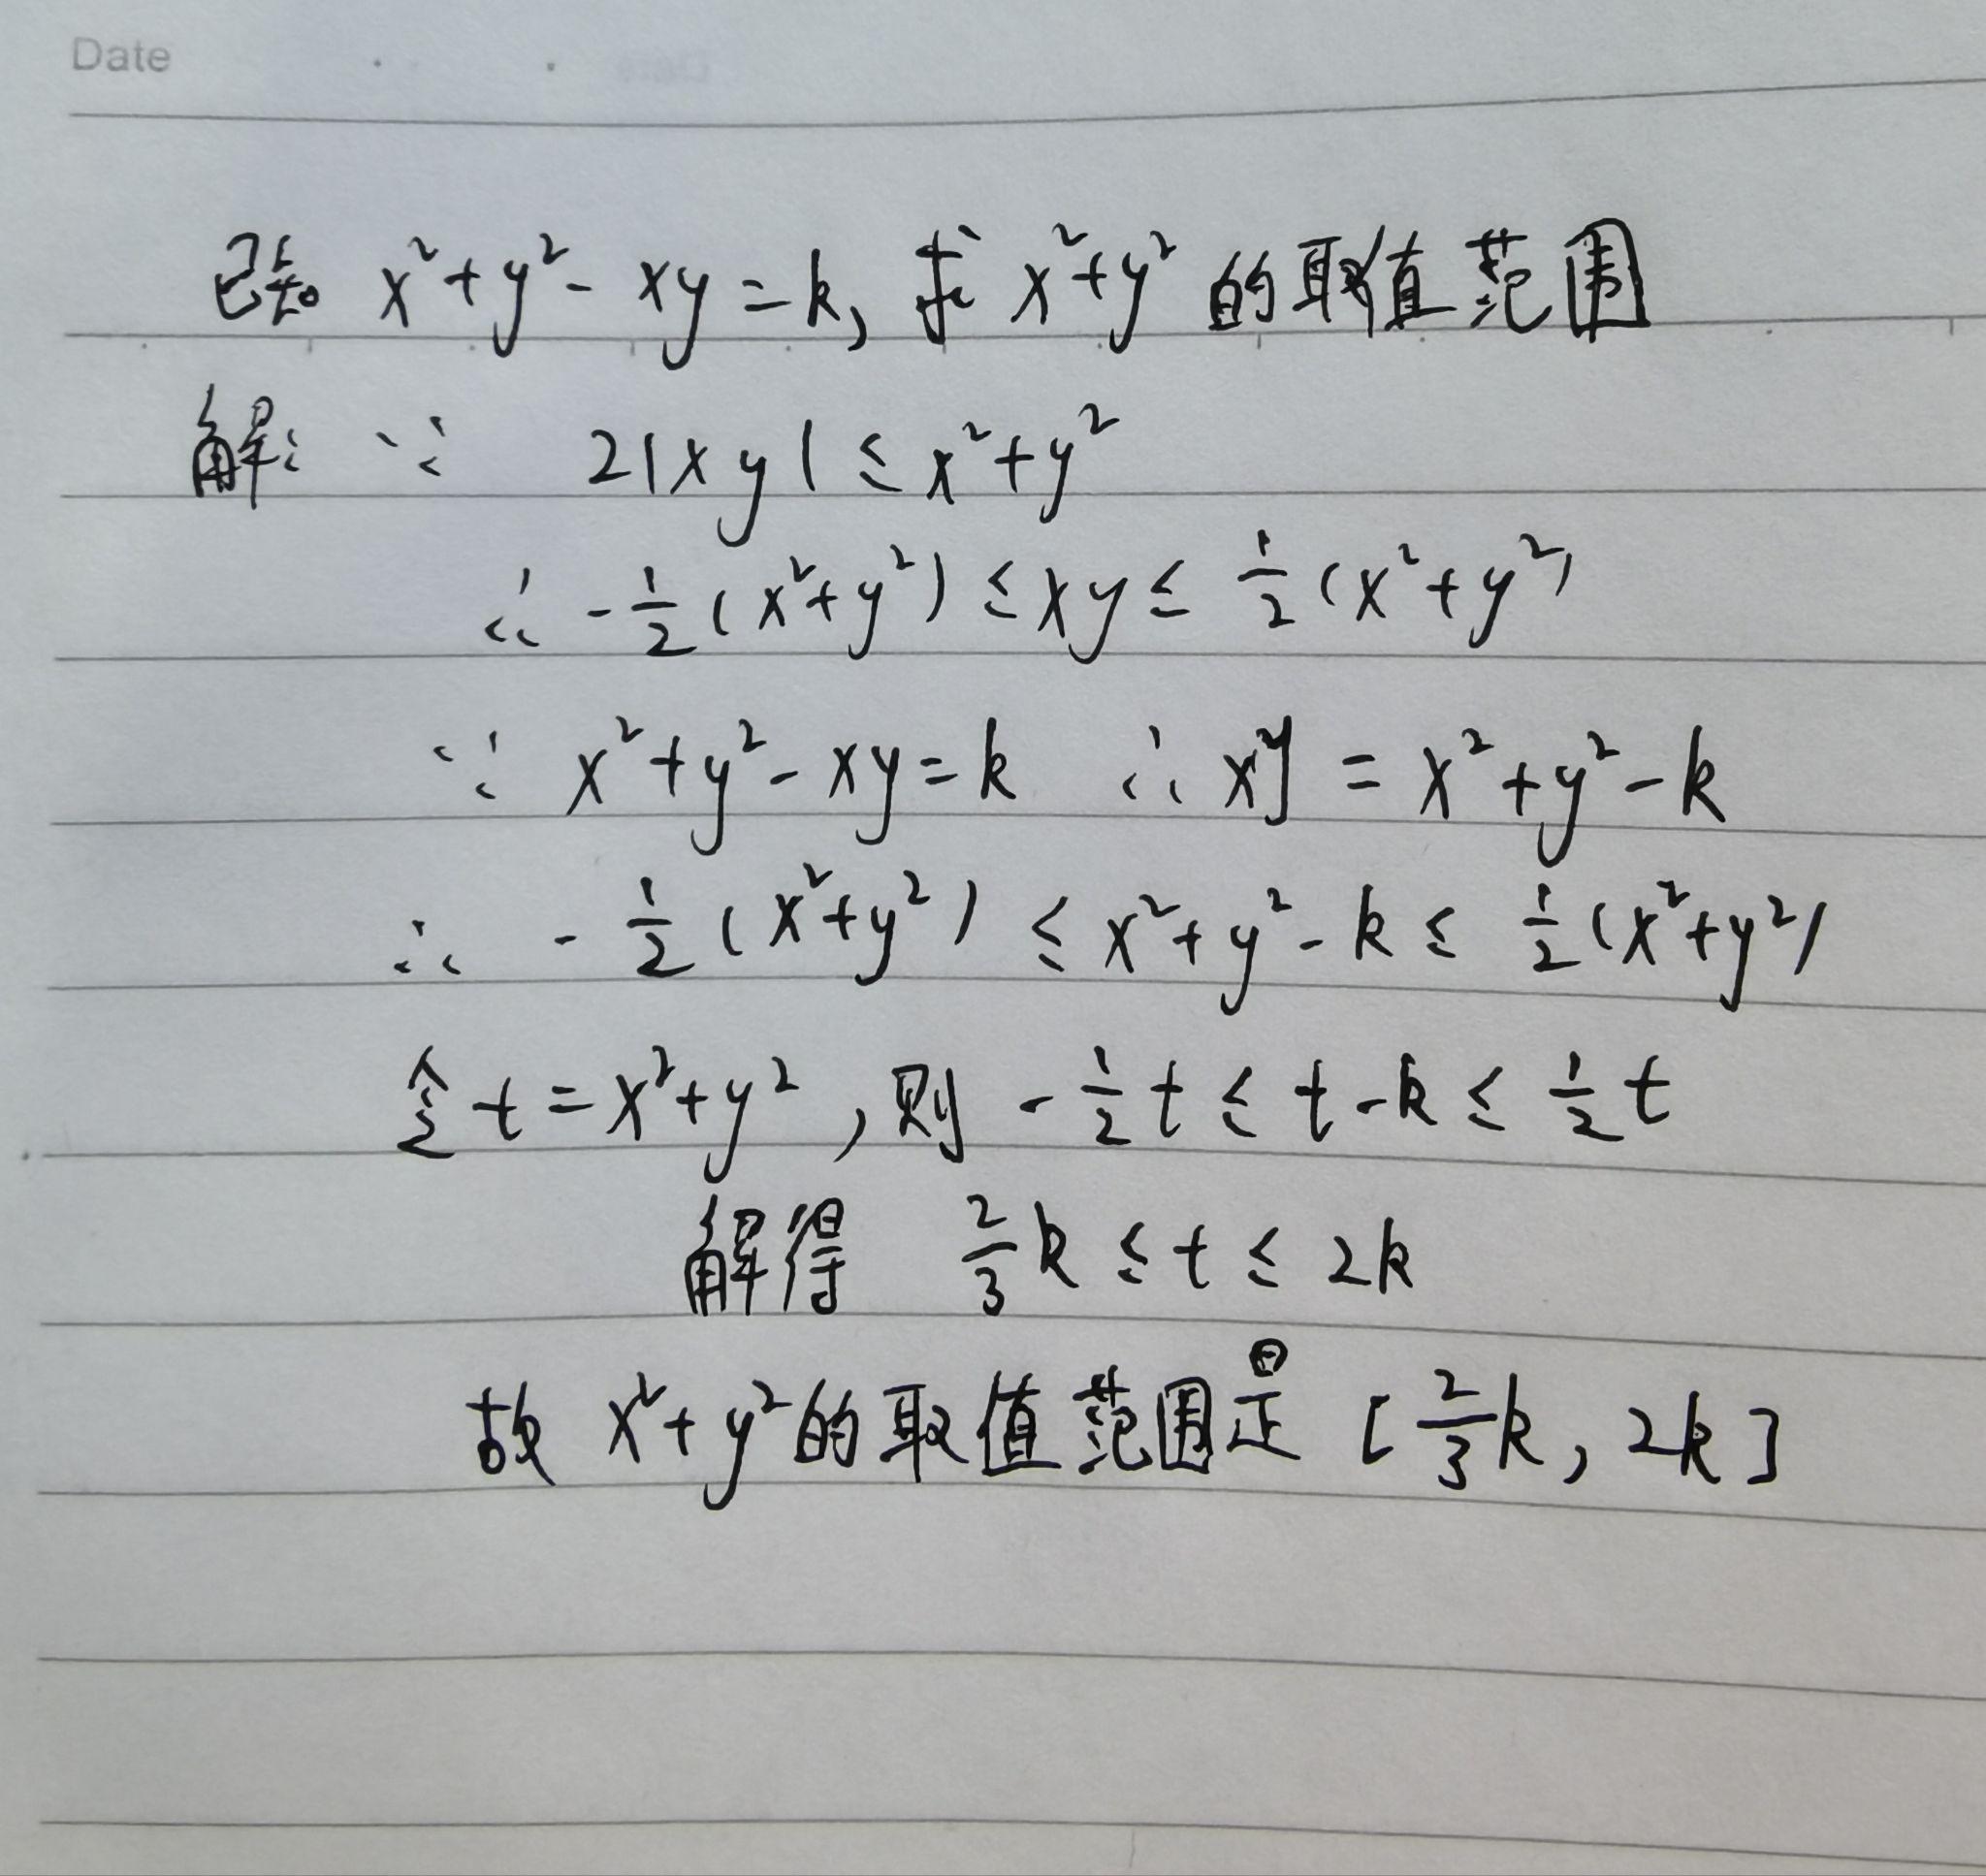 Date
已知 x²+y²-xy=k, 求 x²+y² 的取值范围
解: ∵ 2|xy|≤x²+y²
∴ -1/2(x²+y²)≤xy≤1/2(x²+y²)
∵ x²+y²-xy=k ∴ xy=x²+y²-k
∴ -1/2(x²+y²)≤x²+y²-k≤1/2(x²+y²)
令t=x²+y²,则 -1/2t≤t-k≤1/2t
解得 2/3k≤t≤2k
故 x²+y²的取值范围是 [2/3k, 2k]